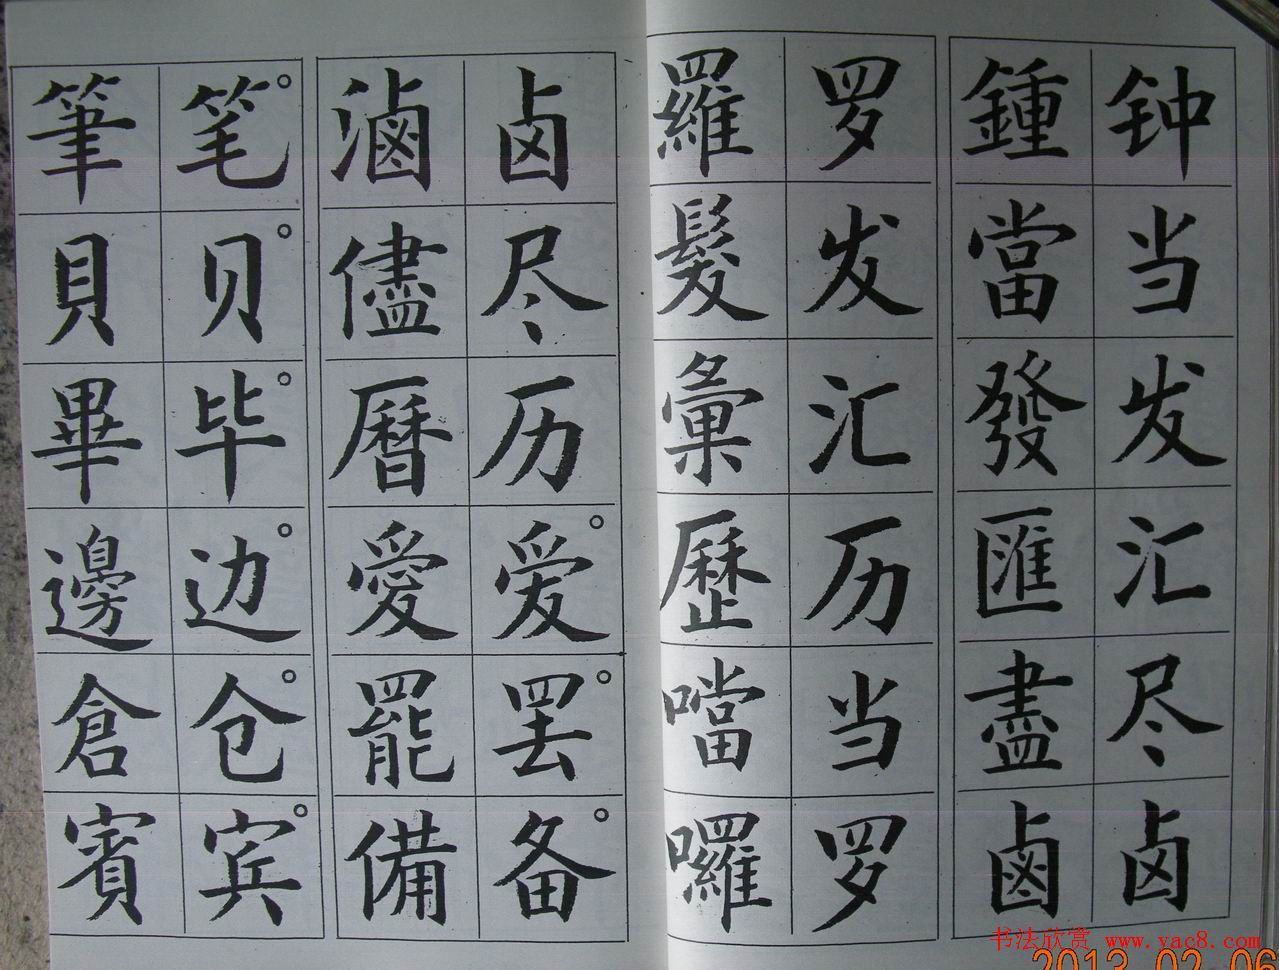 钟 鍾
当 當
发 發
汇 匯
尽 盡
卤 鹵
罗 羅
发 髮
汇 彙
历 歷
当 噹
罗 囉
卤 滷
尽 儘
历 曆
爱。 愛
罢。 罷
备。 備
笔。 筆
贝。 貝
毕。 畢
边。 邊
仓。 倉
宾。 賓
书法欣赏 www.yac8.com
2013 02 06